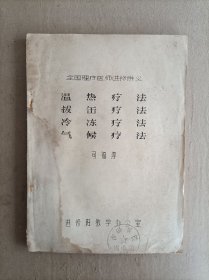 全国理疗医师进修讲义
温热疗法
拔缶疗法
冷冻疗法
气候疗法
进修班教学办公室